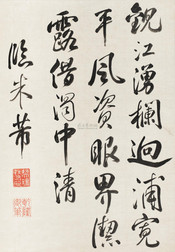 銳江湧欄迴浦寬
平風資眼界潔
露借濁中清
臨米芾